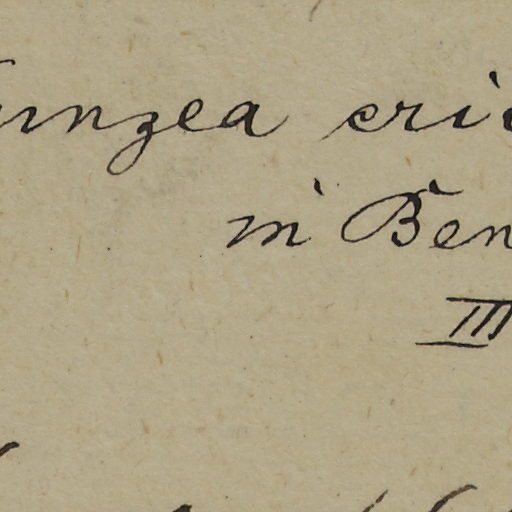 unzea eri
in Ben
III